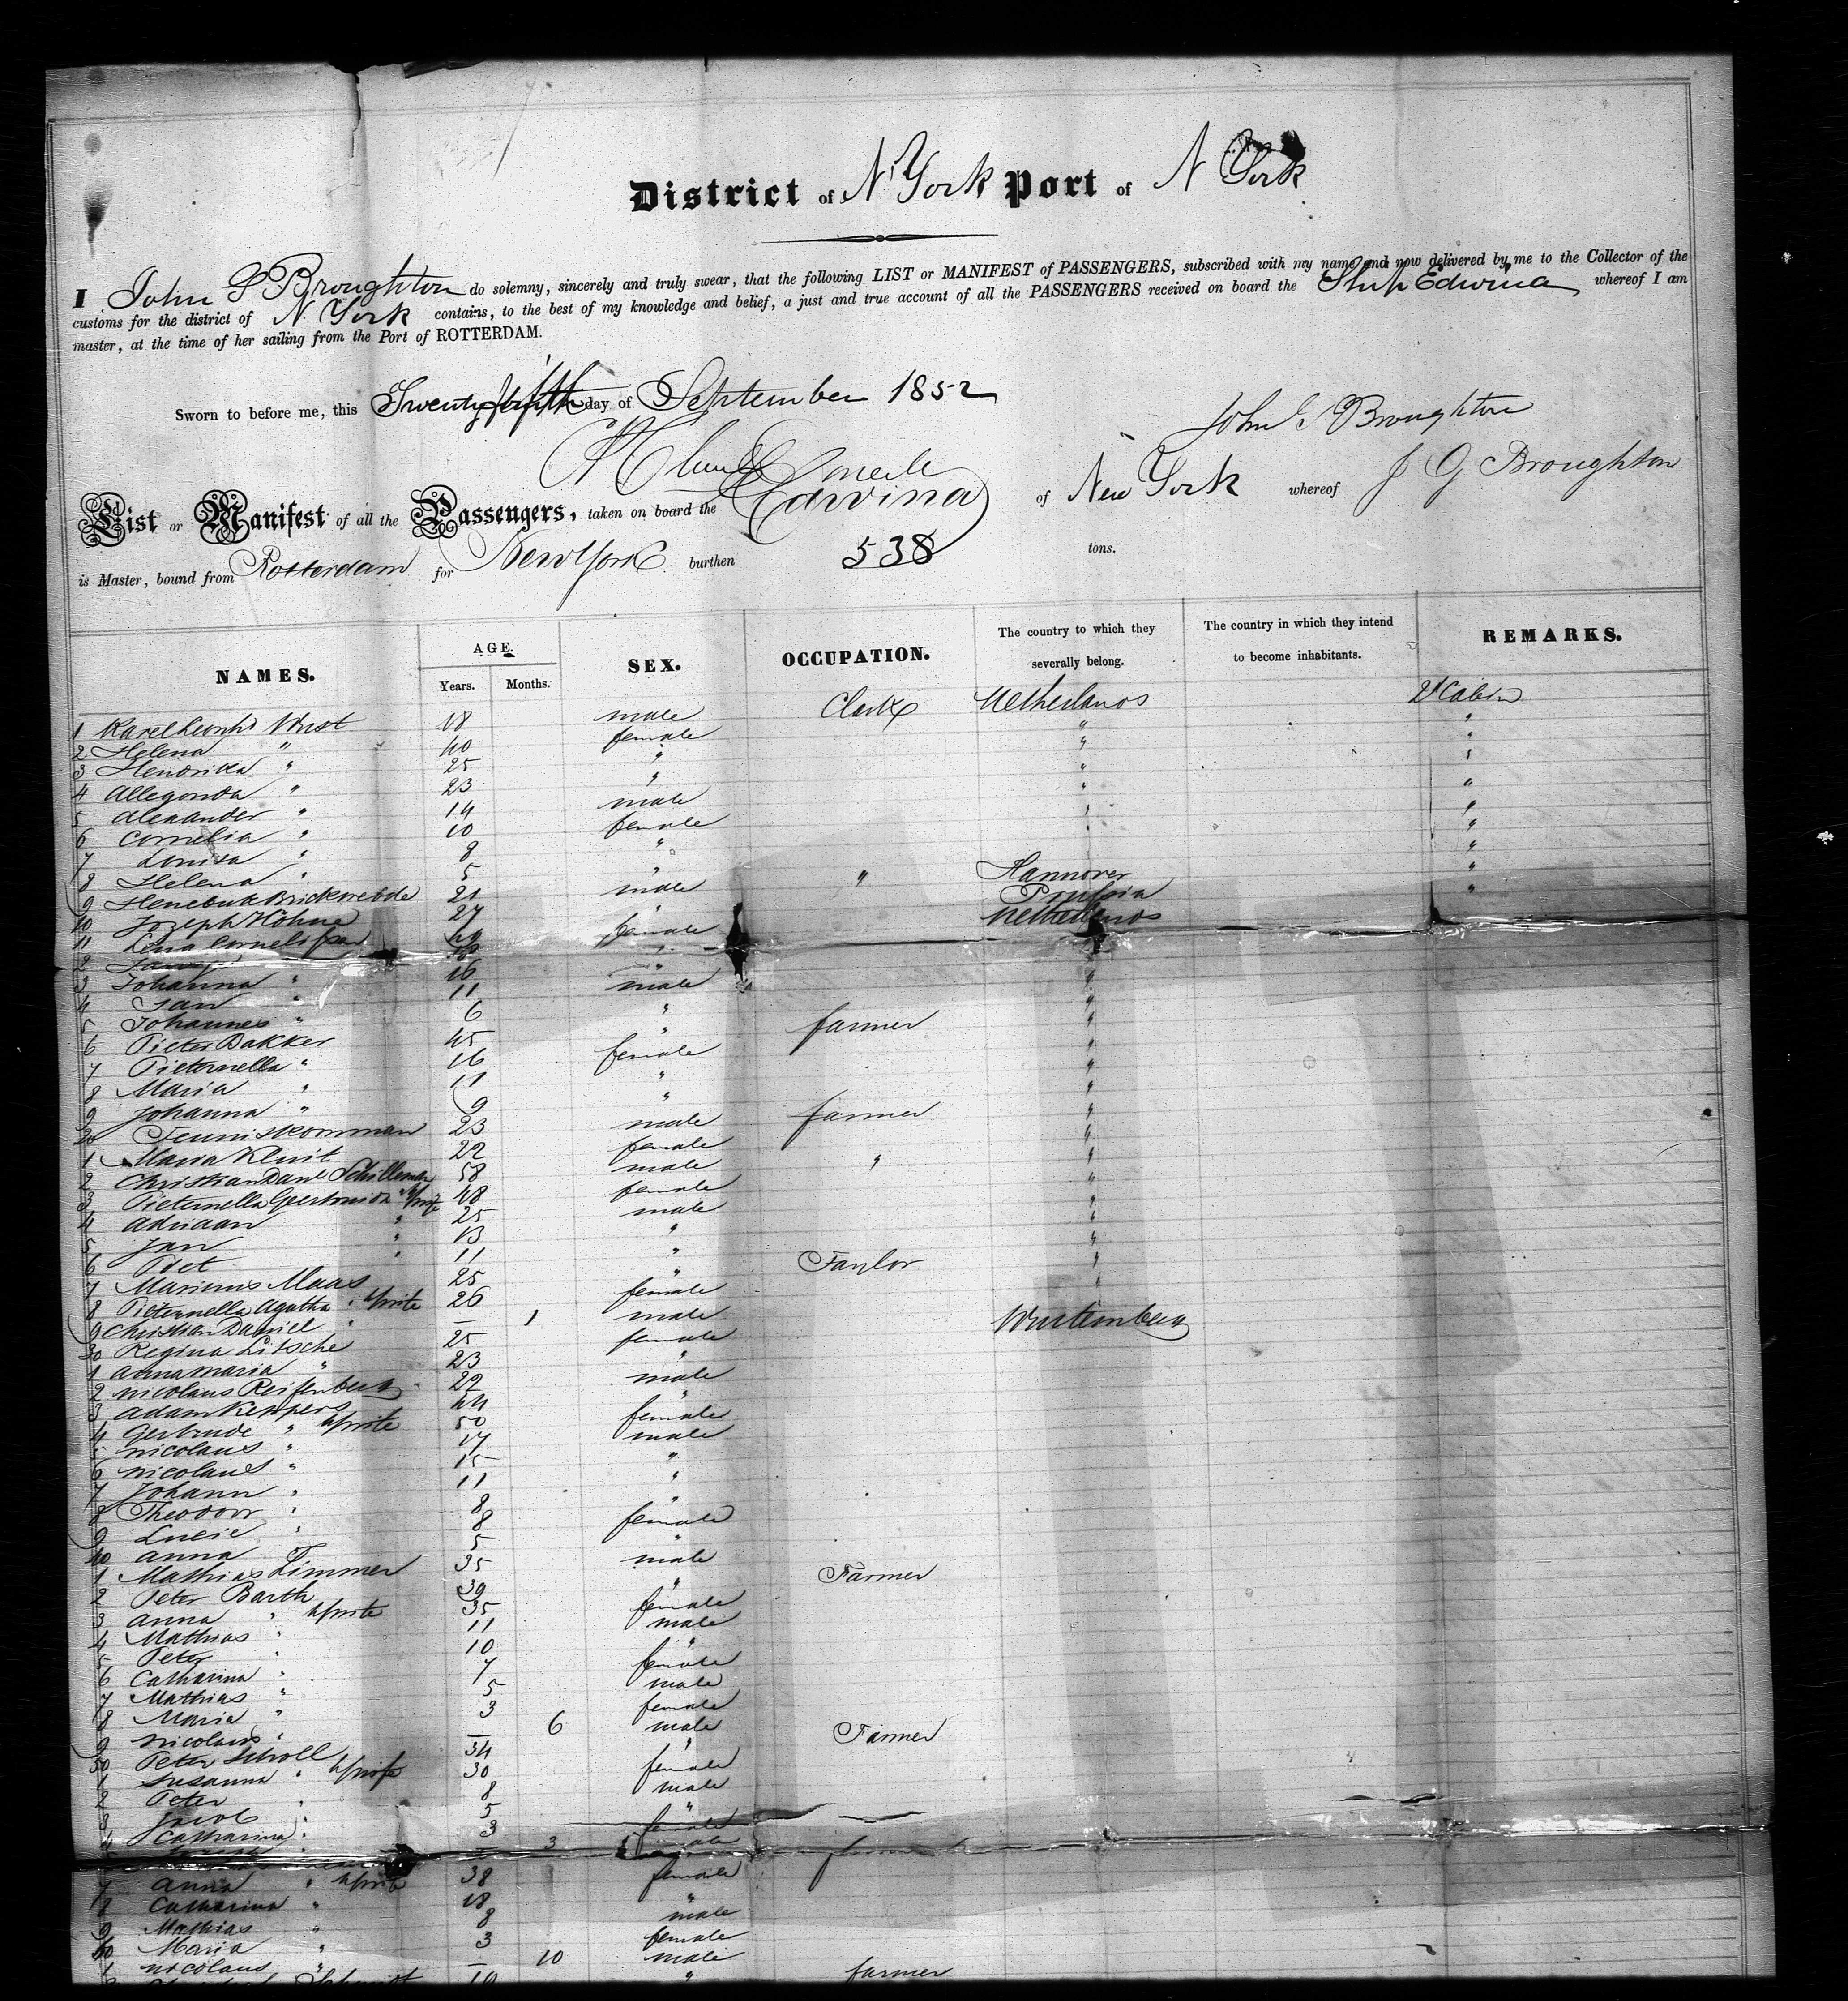 District of N York Port of N York
I John G Broughton do solemny, sincerely and truly swear, that the following LIST or MANIFEST of PASSENGERS, subscribed with my name and now delivered by me to the Collector of the
customs for the district of N. York contains, to the best of my knowledge and belief, a just and true account of all the PASSENGERS received on board the Ship Edwina whereof I am
master, at the time of her sailing from the Port of ROTTERDAM.
Sworn to before me, this Twenty fifth day of September 1852
John G Broughton
List or Manifest of all the Passengers, taken on board the Edwina of New York whereof J G Broughton
is Master, bound from Rotterdam for New York burthen 538 tons.
NAMES. AGE. Years. Months. SEX. OCCUPATION. The country to which they severally belong. The country in which they intend to become inhabitants. REMARKS.
1 Karel Wust 48 male Netherlands
2 Helena " 40 female " "
3 Hendrika " 25 " " "
4 Allegonda " 23 " " "
5 Alexander " 14 male " "
6 Cornelia " 10 female " "
7 Louisa " 8 " "
8 Helena " 5 " "
9 21 male " Hannover "
10 Joseph Höhne 27 " Prussia
11 Lena female Netherlands
2
3 Johanna " 16 " "
4 Jan " 11 male "
5 Johannes " 6 " "
6 Pieter Bakker 45 " farmer "
7 Pieternella " 16 female "
8 Maria " 11 " "
9 Johanna " 9 " "
20 Teunis Komman 23 male farmer "
1 Maria Kluit 22 female "
2 Christian Danl 58 male " "
3 Pieternella 48 female "
4 Adriaan " 25 male "
5 Jan " 13 " "
6 Piet " 11 " "
7 Marinus Maas 25 " Taylor "
8 Pieternella Agatha " 26 female "
9 Christian Daniel " – 1 male
30 Regina Litsche 25 female Wurtemberg
1 Anna Maria " 23 "
2 Nicolaus Reifenberg 22 male
3 Adam Keppers 44 "
4 Gertrude " 50 female
5 Nicolaus " 17 male
6 Nicolaus " 15 "
7 Johann " 11 "
8 Theodor " 8 "
9 Lucie " 8 female
40 Anna 5 "
1 Mathias Timmer 35 male Farmer
2 Peter Barth 39 "
3 Anna " 35 female
4 Mathias " 11 male
5 Peter " 10 "
6 Catharina " 7 female
7 Mathias " 5 male
8 Maria " 3 female
9 Nicolaus " – 6 male
50 Peter Scholl 34 " Farmer
1 Susanna " 30 female
2 Peter " 8 male
3 Jacob " 5 "
4 Catharina " 3 female
3
7 Anna " 38 female
8 Catharina " 18 "
9 Mathias " 8 male
60 Maria " 3 female
1 Nicolaus " – 10 male
Schmidt " farmer